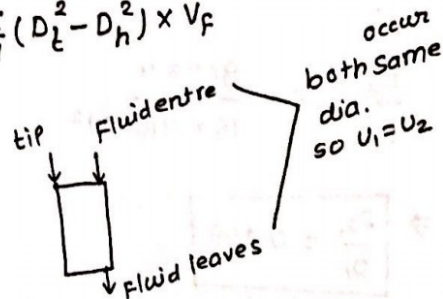 (D_t^2 - D_h^2) × V_F
occur
both same
dia.
so U_1 = U_2
tip
Fluid entre
Fluid leaves